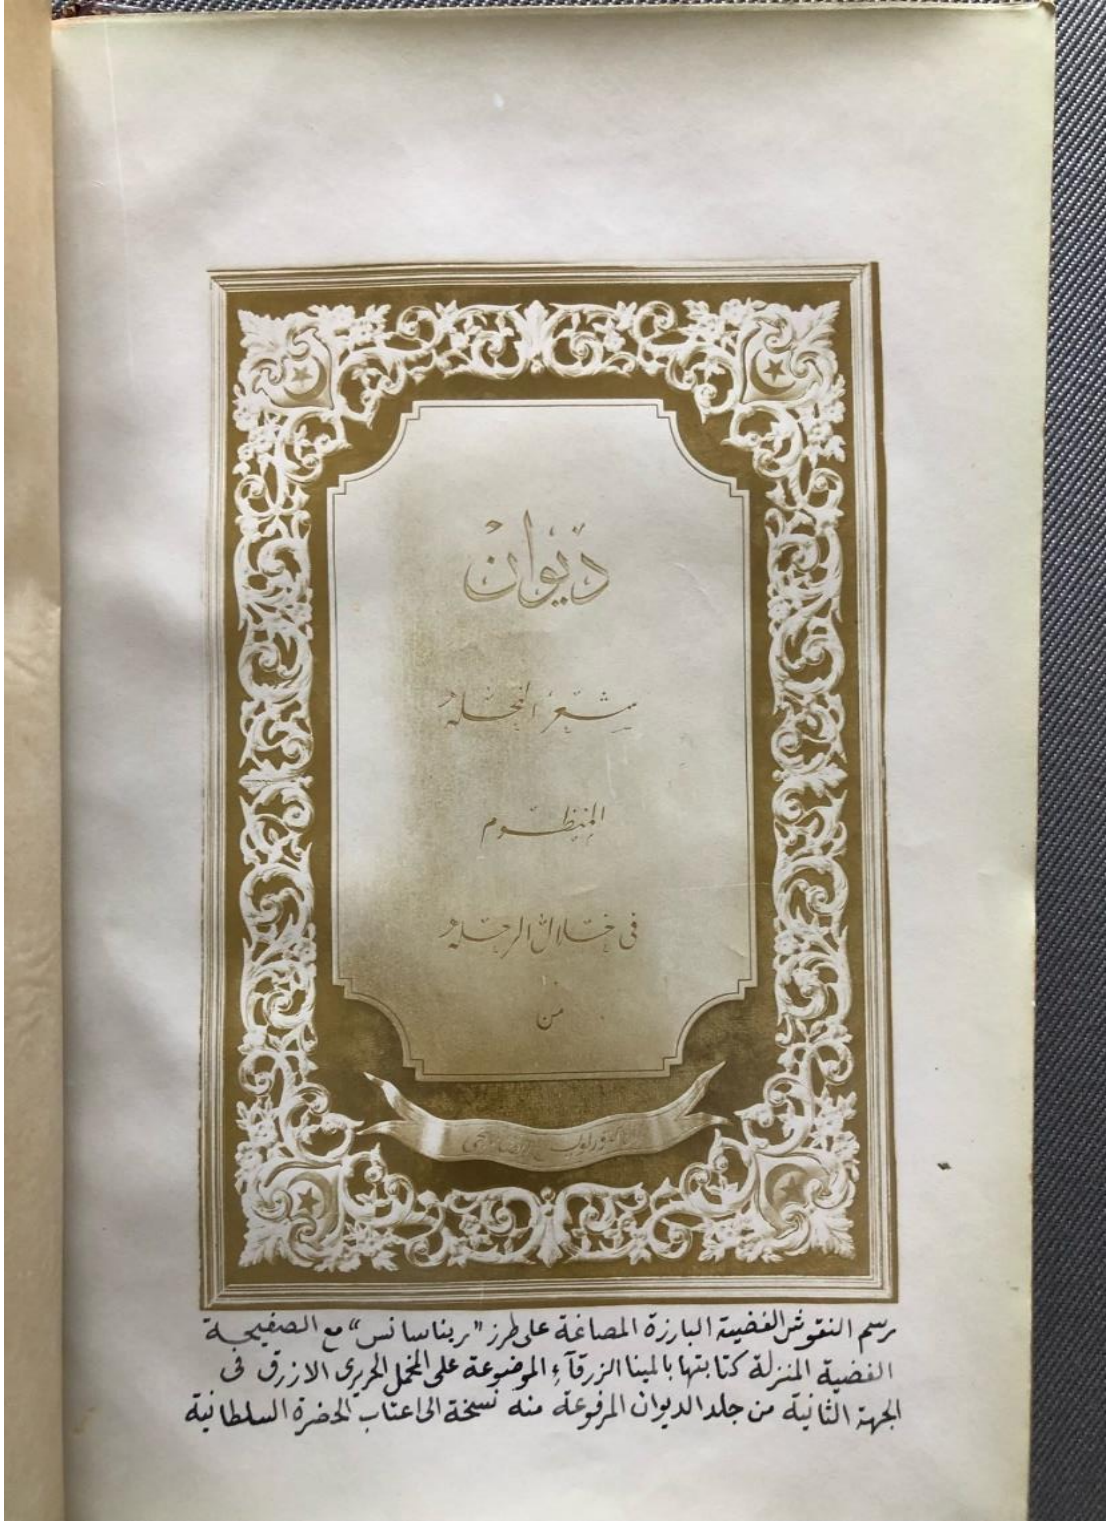 ديوان
شعر النحلة
المنظوم
في خلال الرحلة
من
رسم النقوش الفضية البارزة المصاغة على طرز "ريناسانس" مع الصفيحة
الفضية المنزلة كتابتها بالمينا الزرقآء الموضوعة على المخمل الحريرى الازرق فى
الجهة الثانية من جلد الديوان المرفوعة منه نسخة الى اعتاب الحضرة السلطانية